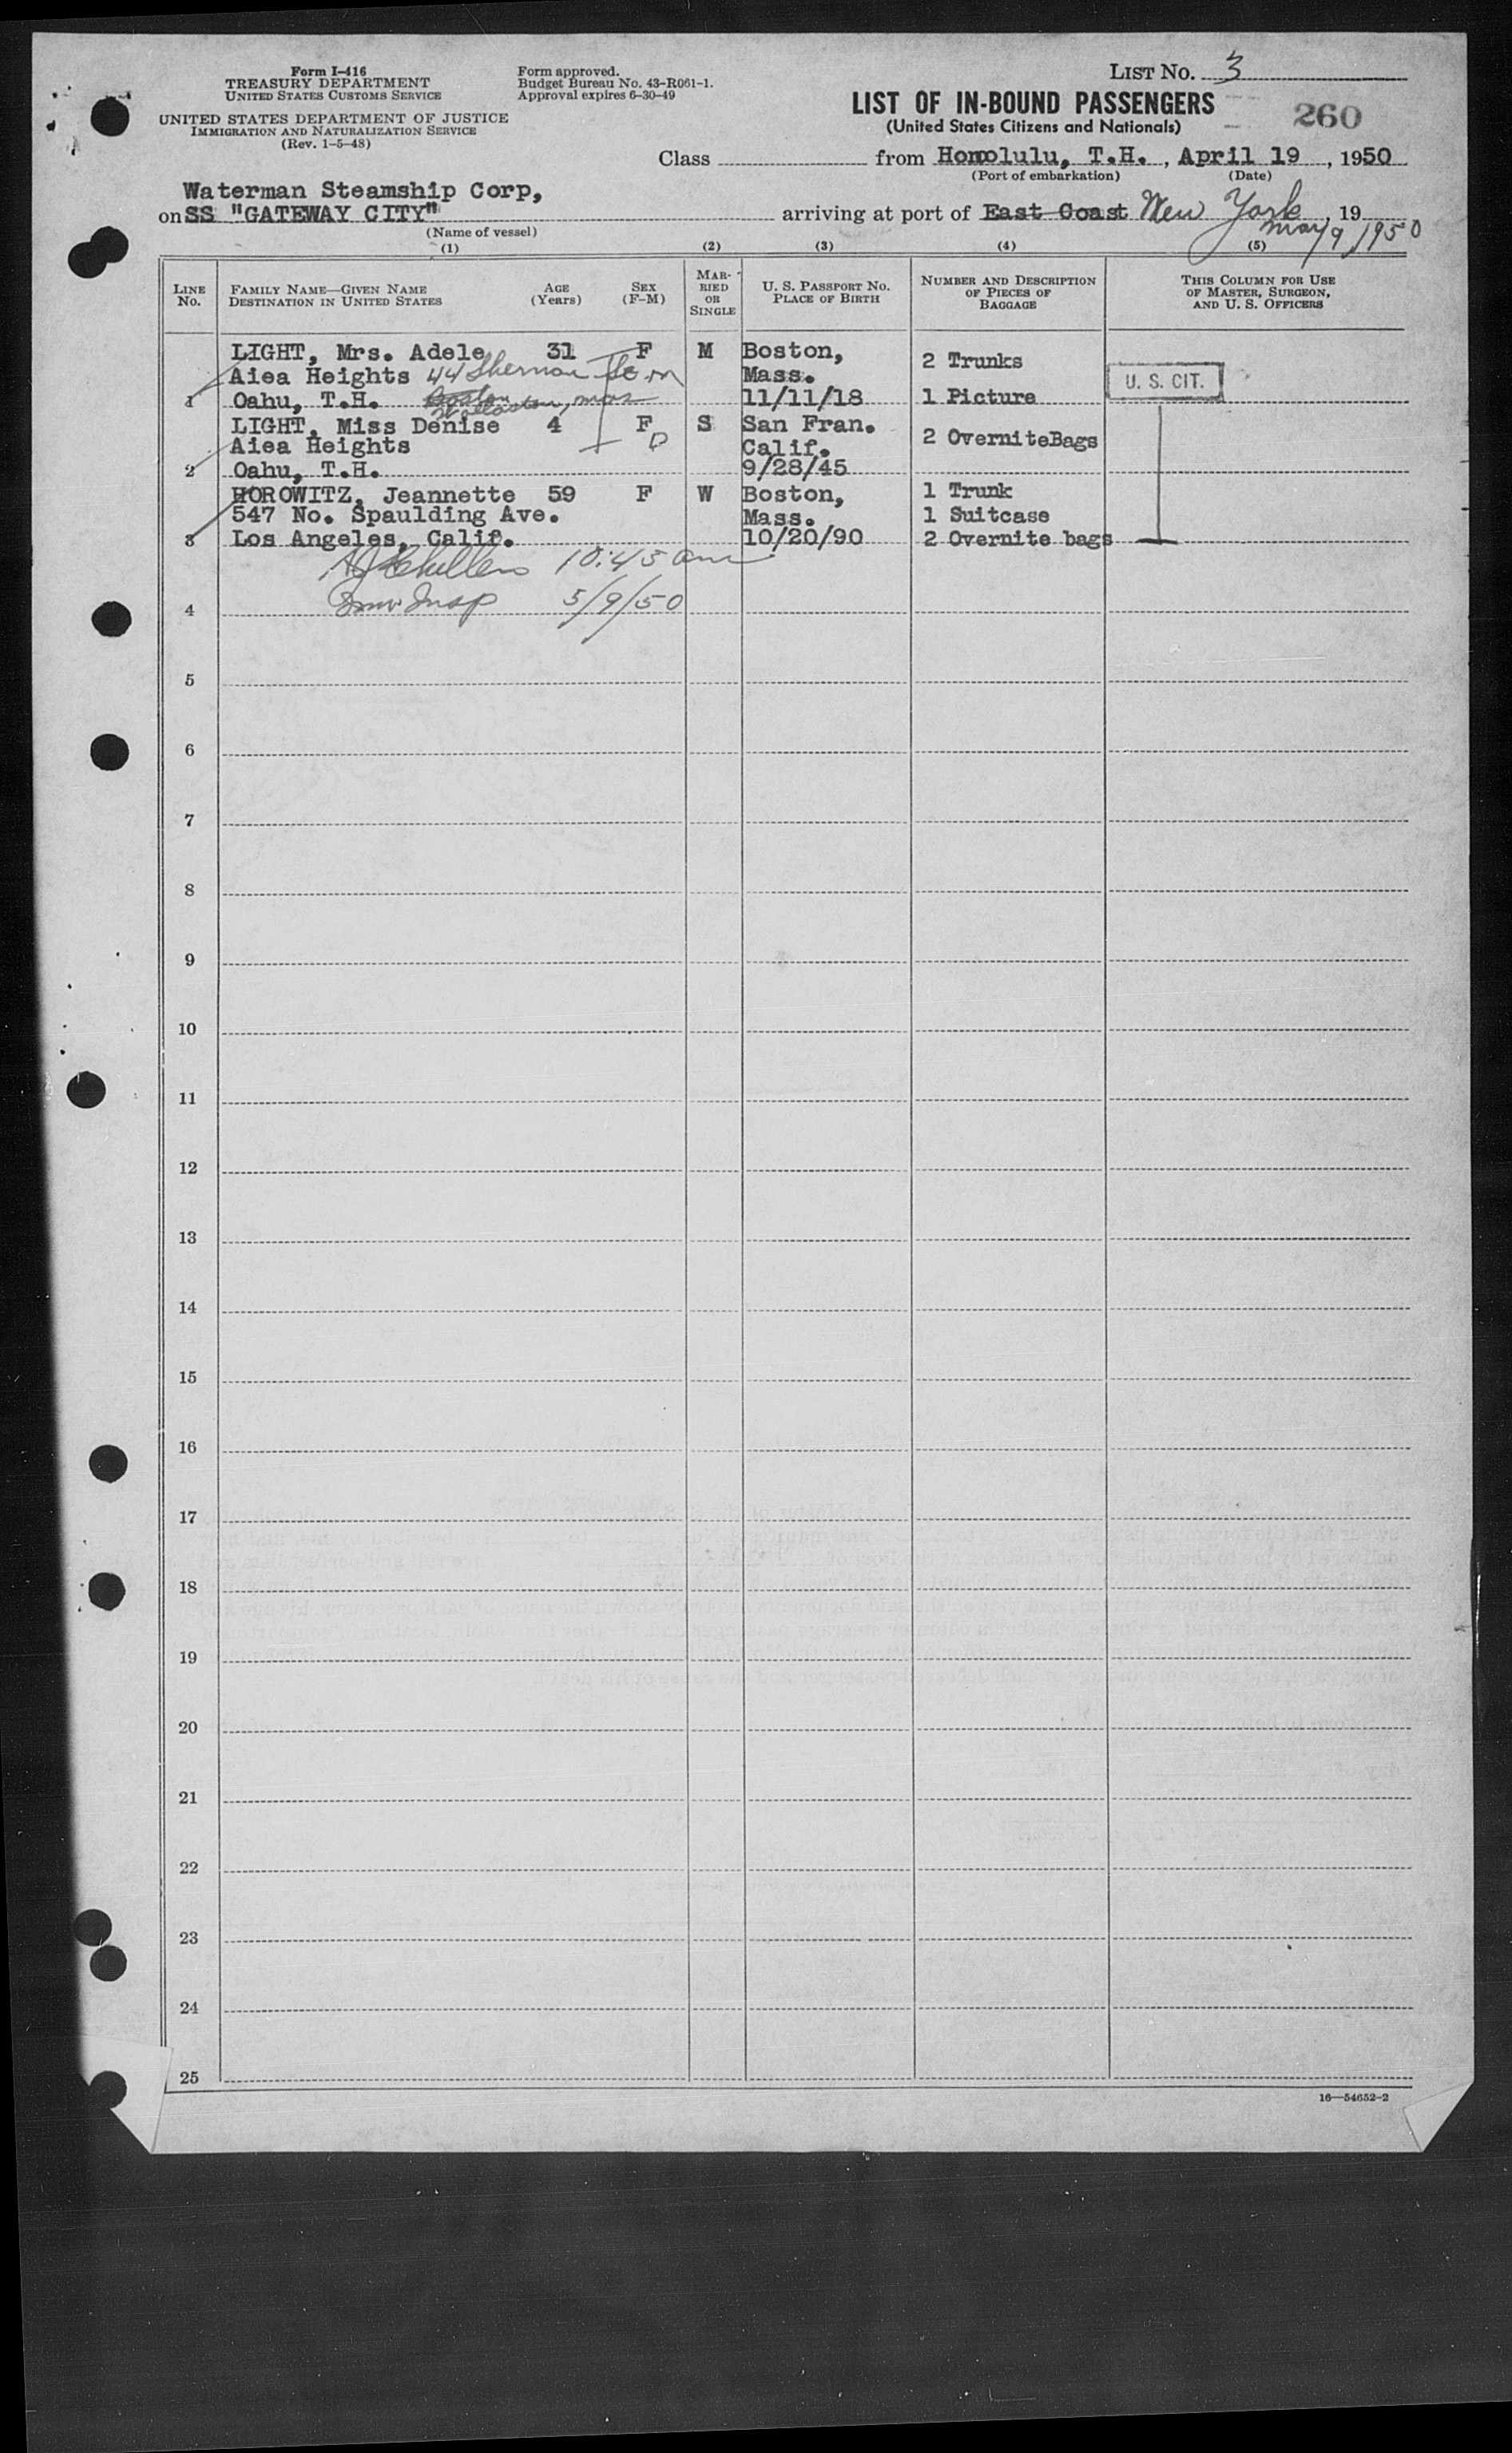 Form I-416
TREASURY DEPARTMENT
UNITED STATES CUSTOMS SERVICE
UNITED STATES DEPARTMENT OF JUSTICE
IMMIGRATION AND NATURALIZATION SERVICE
(Rev. 1-5-48)
Form approved.
Budget Bureau No. 43-R061-1.
Approval expires 6-30-49
LIST NO. 3
LIST OF IN-BOUND PASSENGERS
(United States Citizens and Nationals)
260
Class from Honolulu, T.H., April 19, 1950
(Port of embarkation) (Date)
Waterman Steamship Corp,
on SS "GATEWAY CITY" arriving at port of East Coast New York, 19
May 9 1950
(Name of vessel)
(1) (2) (3) (4) (5)
LINE NO.
FAMILY NAME—GIVEN NAME
DESTINATION IN UNITED STATES
AGE
(Years)
SEX
(F-M)
MARRIED OR SINGLE
U. S. PASSPORT NO.
PLACE OF BIRTH
NUMBER AND DESCRIPTION
OF PIECES OF
BAGGAGE
THIS COLUMN FOR USE
OF MASTER, SURGEON,
AND U. S. OFFICERS
LIGHT, Mrs. Adele 31 F M Boston, 2 Trunks
Aiea Heights 44 Sherman St Mass. U. S. CIT.
1 Oahu, T.H. Boston Wollaston, mas 11/11/18 1 Picture
LIGHT, Miss Denise 4 F S San Fran. 2 OverniteBags
Aiea Heights Calif.
2 Oahu, T.H. 9/28/45
HOROWITZ, Jeannette 59 F W Boston, 1 Trunk
547 No. Spaulding Ave. Mass. 1 Suitcase
3 Los Angeles, Calif. 10/20/90 2 Overnite bags
10:45 am
4 Imm Insp 5/9/50
5
6
7
8
9
10
11
12
13
14
15
16
17
18
19
20
21
22
23
24
25
16—54652-2